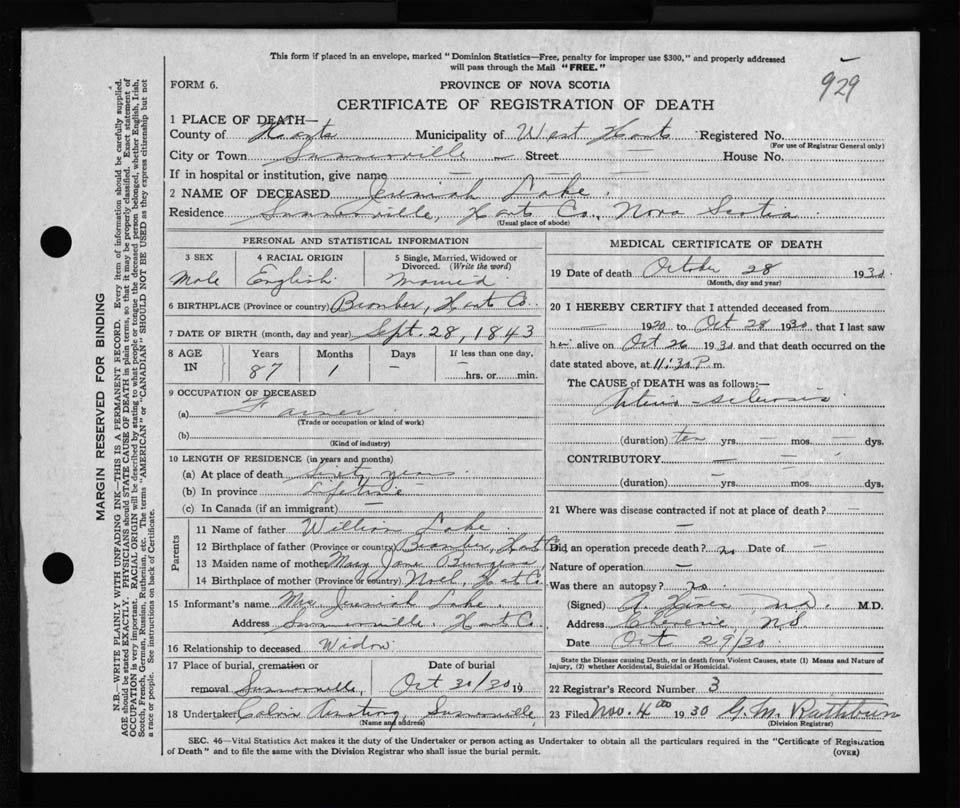 This form if placed in an envelope, marked "Dominion Statistics—Free, penalty for improper use $300," and properly addressed
will pass through the Mail "FREE."
929
FORM 6.
PROVINCE OF NOVA SCOTIA
CERTIFICATE OF REGISTRATION OF DEATH
1 PLACE OF DEATH—
County of Hants Municipality of West Hants Registered No.
(For use of Registrar General only)
City or Town Summerville — Street — House No.
If in hospital or institution, give name — — —
2 NAME OF DECEASED Jeremiah Lake.
Residence Summerville, Hants Co., Nova Scotia
(Usual place of abode)
PERSONAL AND STATISTICAL INFORMATION
3 SEX 4 RACIAL ORIGIN 5 Single, Married, Widowed or
Divorced. (Write the word)
Male English Married
6 BIRTHPLACE (Province or country) Bramber, Hants Co.
7 DATE OF BIRTH (month, day and year) Sept. 28, 1843
8 AGE IN Years Months Days If less than one day,
87 1 — hrs. or min.
9 OCCUPATION OF DECEASED
(a) Farmer.
(Trade or occupation or kind of work)
(b)
(Kind of industry)
10 LENGTH OF RESIDENCE (in years and months)
(a) At place of death Sixty years.
(b) In province Lifetime
(c) In Canada (if an immigrant) —
Parents
11 Name of father William Lake.
12 Birthplace of father (Province or country) Bramber, Hants Co.
13 Maiden name of mother Mary Jane Burgess
14 Birthplace of mother (Province or country) Noel, Hants Co.
15 Informant's name Mrs Jeremiah Lake.
Address Summerville. Hants Co.
16 Relationship to deceased Widow
17 Place of burial, cremation or Date of burial
removal Summerville, Oct 30/30 19
18 Undertaker Colin Summerville,
(Name and address)
MEDICAL CERTIFICATE OF DEATH
19 Date of death October 28 1930
(Month, day and year)
20 I HEREBY CERTIFY that I attended deceased from
— 1920 to Oct 28 1930, that I last saw
him alive on Oct 26 1930 and that death occurred on the
date stated above, at 11.30 P. m.
The CAUSE of DEATH was as follows:—
Arterio-sclerosis
(duration) ten yrs. — mos. — dys.
CONTRIBUTORY. — —
(duration) — yrs. — mos. — dys.
21 Where was disease contracted if not at place of death? —
—
Did an operation precede death? no Date of —
Nature of operation —
Was there an autopsy? no.
(Signed) A. M.D. M.D.
Address Cheverie, N.S.
Date Oct 29/30
State the Disease causing Death, or in death from Violent Causes, state (1) Means and Nature of
Injury, (2) whether Accidental, Suicidal or Homicidal.
22 Registrar's Record Number 3
23 Filed Nov. 4th 1930 G. M. Rathbun
(Division Registrar)
SEC. 46—Vital Statistics Act makes it the duty of the Undertaker or person acting as Undertaker to obtain all the particulars required in the "Certificate of Registration
of Death" and to file the same with the Division Registrar who shall issue the burial permit.
(OVER)
MARGIN RESERVED FOR BINDING
N.B.—WRITE PLAINLY WITH UNFADING INK—THIS IS A PERMANENT RECORD. Every item of information should be carefully supplied.
AGE should be stated EXACTLY. PHYSICIANS should STATE CAUSE OF DEATH in plain terms, so that it may be properly classified. Exact statement of
OCCUPATION is very important. RACIAL ORIGIN will be described by stating to what people or tongue the deceased person belonged, whether English, Irish,
Scotch, French, German, Russian, Ruthenian, etc. The terms "AMERICAN" or "CANADIAN" SHOULD NOT BE USED as they express citizenship but not
a race or people. See instructions on back of Certificate.